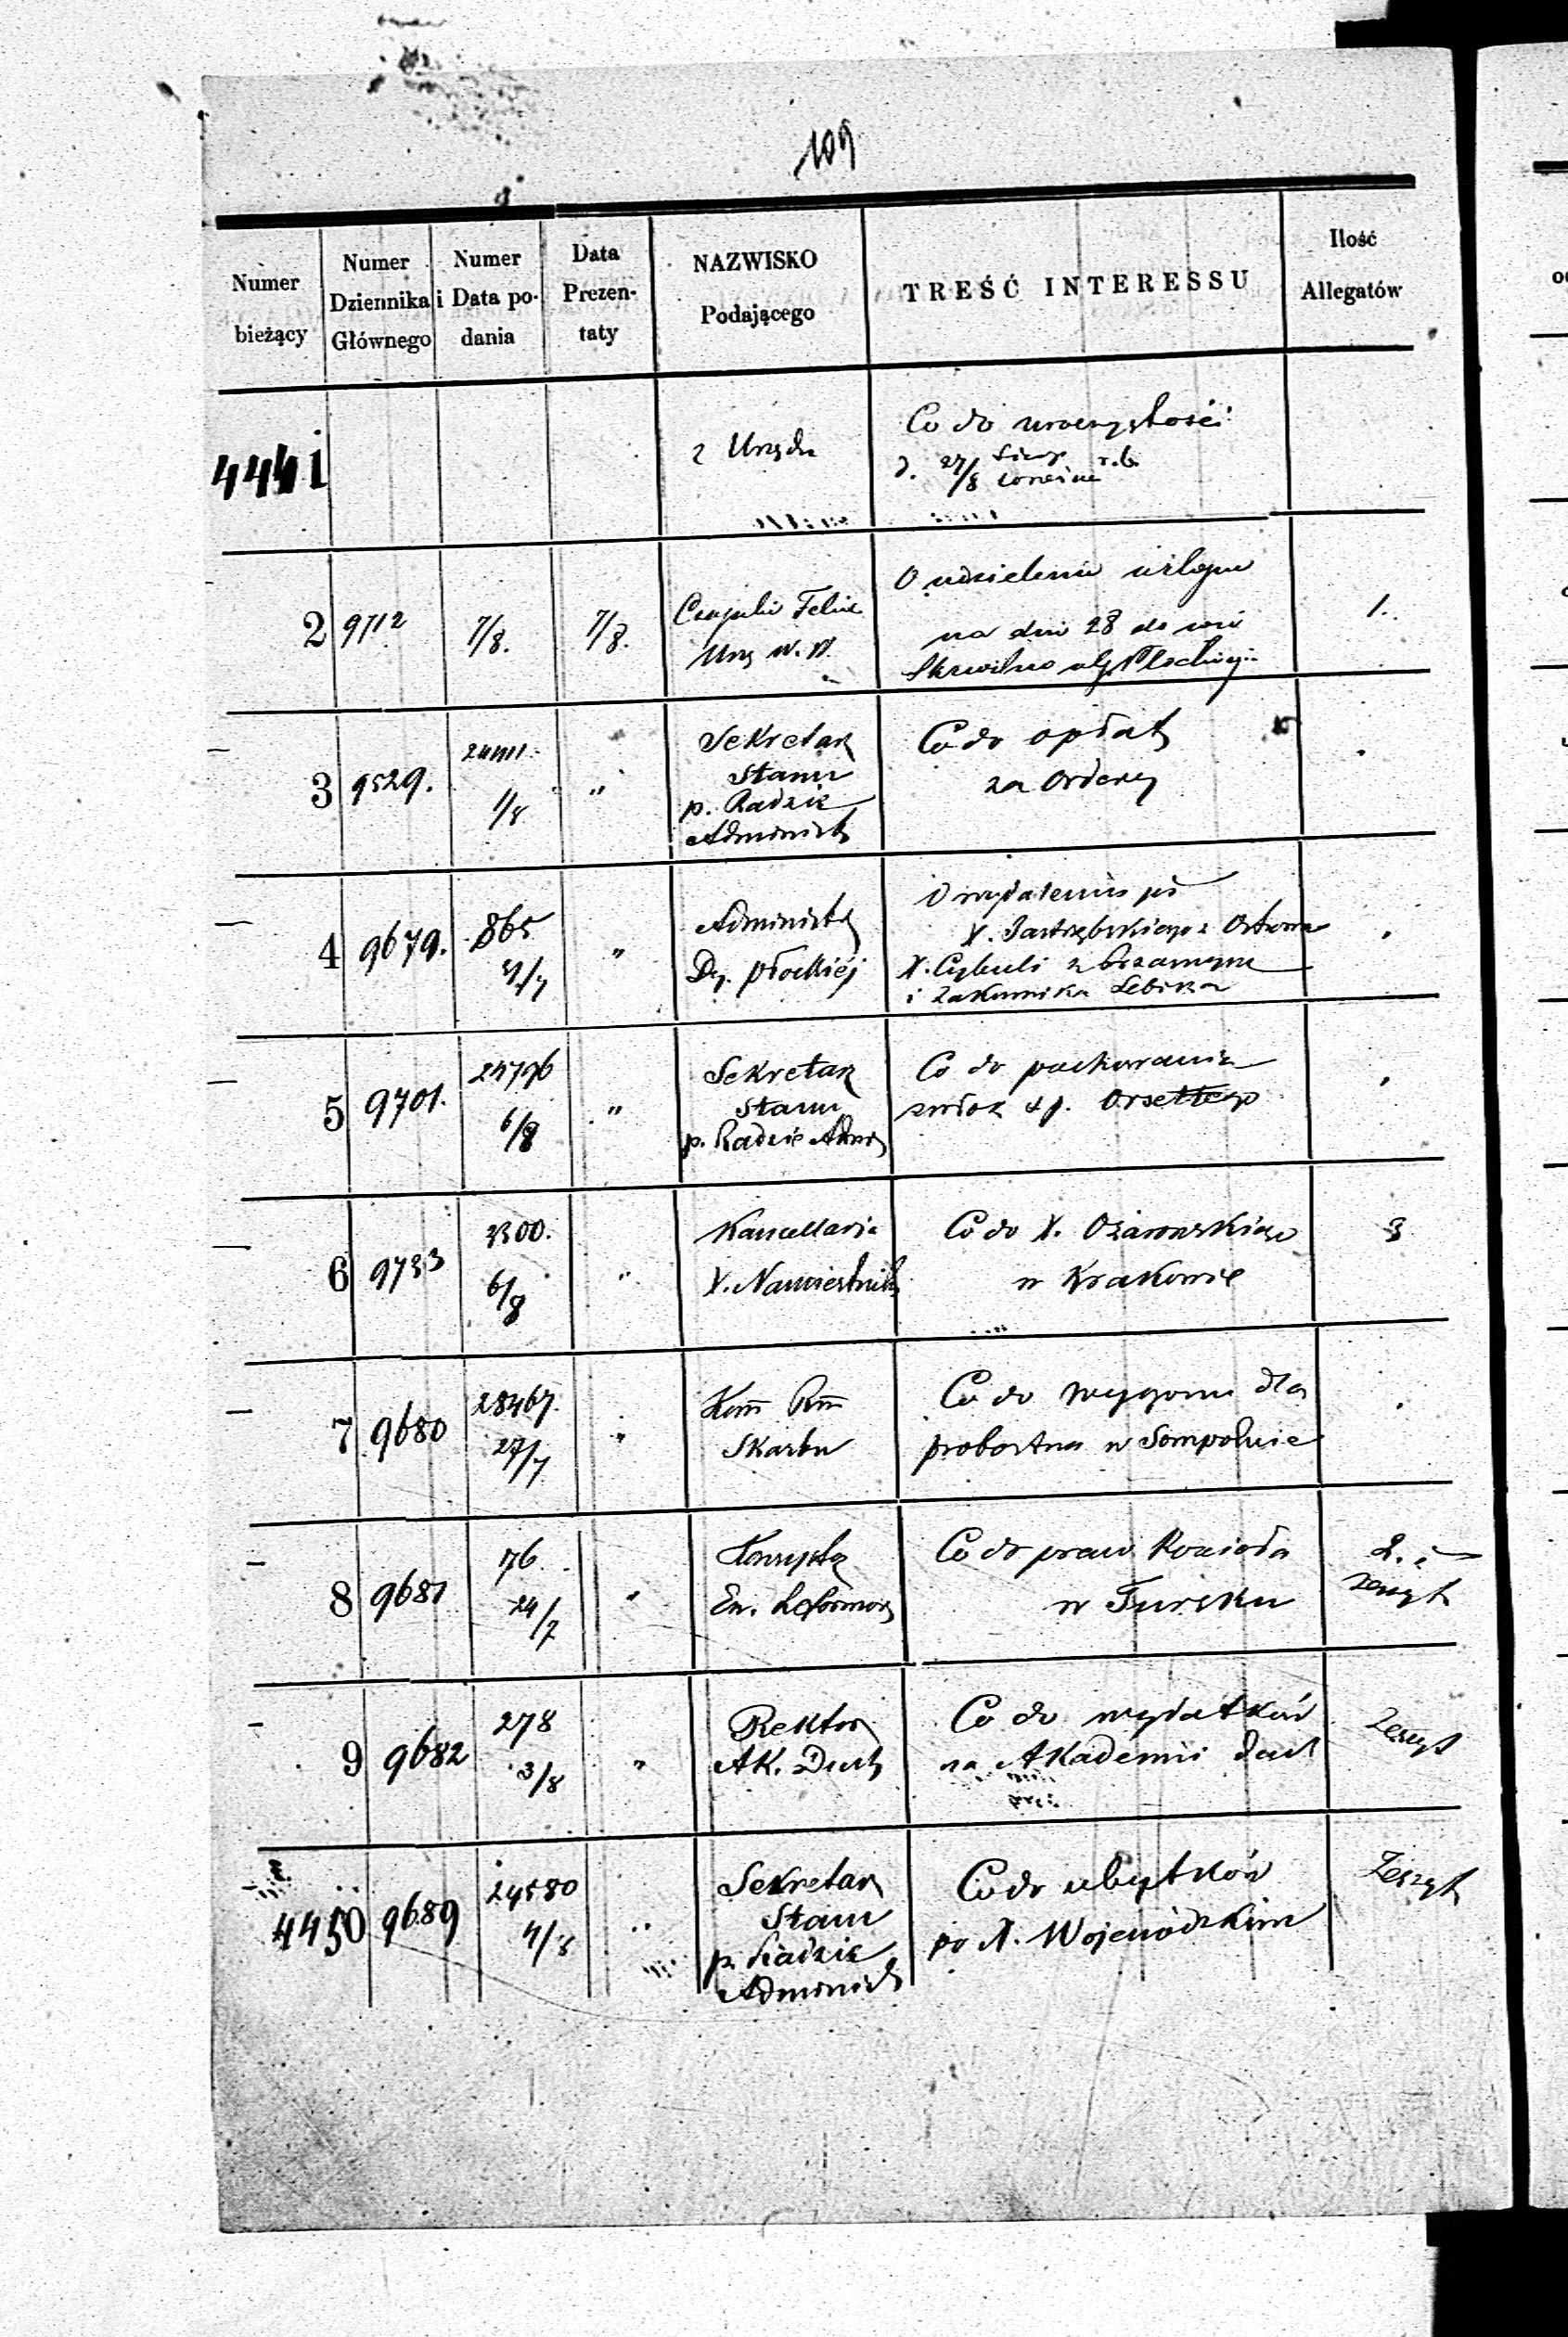 109
Numer bieżący
Numer Dziennika Głównego
Numer i Data podania
Data Prezentaty
NAZWISKO Podającego
TREŚĆ INTERESSU
Ilość Allegatów
4441
z Urzędu
Co do uroczystości
d. 27/8 r.b.
2 9712 7/8. 7/8.
Felix
Urz
O udzielenie urlopu
na dni 28 do wsi
Skrwilno
1.
3 9529. 1/8 "
Sekretarz
Stanu
p. Radzie
Administ
Co do opłat
za Ordery
4 9679. 865 "
Administ
Dy. płockiéj
O wydalenie
X. Jastrzębskiego z
X. Cybuli z
i Zakonnika
5 9701. 24796 6/8 "
Sekretarz
Stanu
p. Radzie Admi
Co do pochowania
zwłok ś p. Orsettego
6 9733 3300. 6/8 "
Kancellaria
X. Namiestnika
Co do X. Ożarowskiego
w Krakowie
3
7 9680 28467. 27/7 "
Kom Rz
Skarbu
Co do wygonu dla
probostwa w Sompolnie
8 9681 76. 24/7 "
Konsystorz
Ew. Reformow
Co do praw Kościoła
w Tursku
2. i
zeszyt
9 9682 278 3/8 "
Rektor
Ak. Duch
Co do wydatków
na Akademii duch
Zeszyt
4450 9689 24580 4/8 "
Sekretarz
Stanu
p. Radzie
Administ
Co do ubytków
po X. Wojewódzkim
Zeszyt